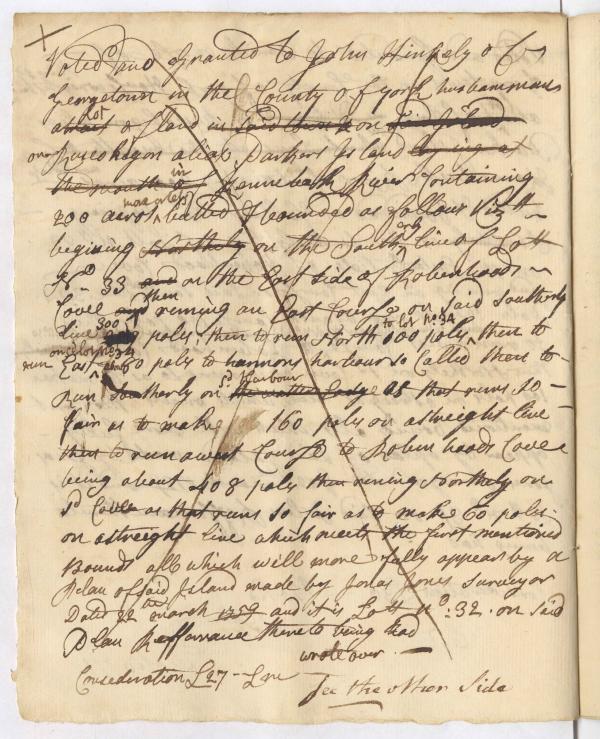 X
Voted and Granted to John Hinkely of
Georgetown in the County of york husbandman
a Lot of Land in said town on said Island
on Ruscohegon alias, Parkers Island lying at
the mouth of in Kennebeck River Containing
200 acres more or less butted & bounded as follows Viz
begining Northely on the Southerly line of Lott
No 33 and on the East side of Robinhoods
Cove and then runing an East Course on said Southerly
line 300 poles, then to run North 100 poles to lot No 34 then to
run East on said lot No 34 about 60 poles to harmons harbour so Called then to
run Southerly on sd harbour the water Ledge as that runs so
fair as to make 160 poles on a streight line
then to run a west Course to Robin hoods Cove
being about 408 poles then runing Northely on
sd Cove as that runs so fair as to make 60 poles
on a streight line which meets the first mentioned
Bounds all which will more fully appear by a
Plan of said Island made by Jonas Jones surveyor
Dated 22th march 1759 and it is Lott No: 32. on said
Plan Refarrance thereto being had
wrote over
Consederation £27
See the other Side